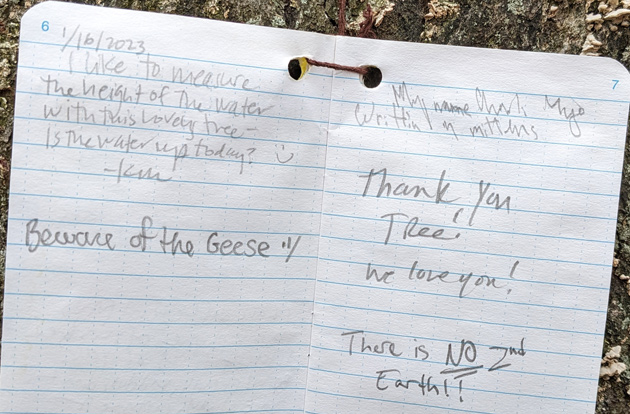 6
1/16/2023
I like to measure
the height of the water
with this lovely tree-
Is the water up today? :)
-km
Beware of the Geese :)
7
My name Charli
Writtin n mittens
Thank you
Tree!
we love you!
There is NO 2nd
Earth!!